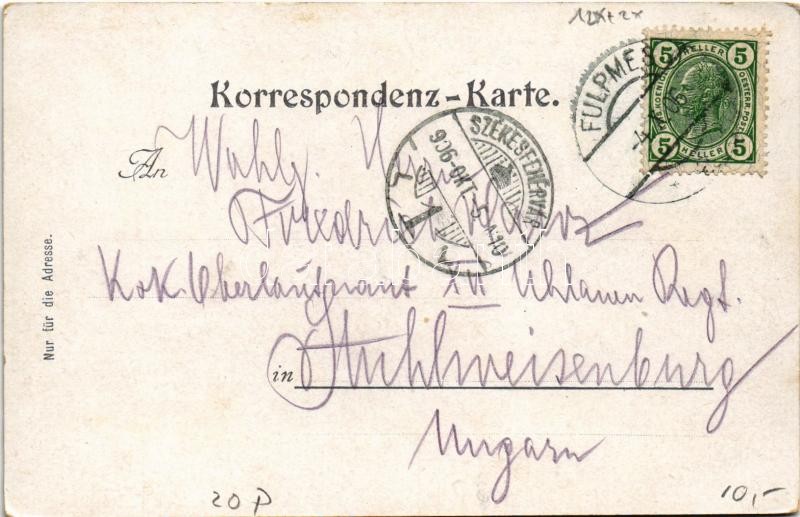 12x+2x
5 HELLER 5
KAIS. KOENIGL. OESTERR. POST
5 HELLER 5
FULPMES
Korrespondenz-Karte.
SZÉKESFEHÉRVÁR
906 OKT. 5
An Wohlg. Herrn
Friedrich
K.k. Oberleutnant III Uhlanen Regt.
in Stuhlweisenburg
Ungarn
Nur für die Adresse.
20 P
10,-